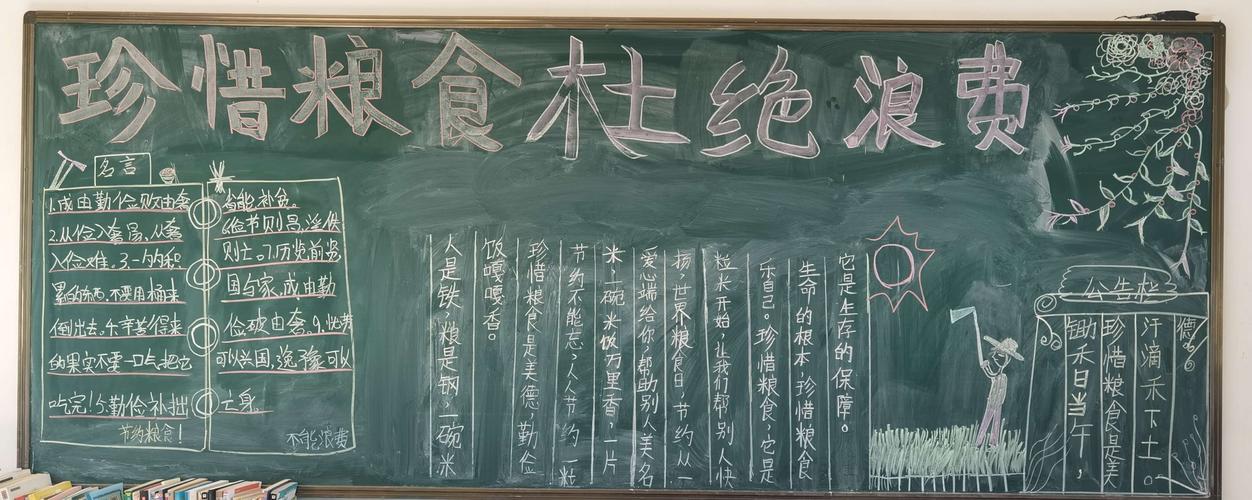 珍惜粮食杜绝浪费
名言
1.成由勤俭败由奢
2.从俭入奢易,从奢
入俭难。3.一勺勺积
累的东西,不要用桶来
倒出去。4.辛苦得来
的果实不要一口气把它
吃完!5.勤俭补拙
节约粮食!
省能补贫。
俭节则昌,淫佚
则亡。7.历览前贤
国与家,成由勤
俭破由奢。9.忧劳
可以兴国,逸豫可以
亡身。
不能浪费
人是铁,粮是钢,一碗米
饭嘎嘎香。
珍惜粮食是美德,勤俭
节约不能忘,人人节约一粒
米,一碗米饭万里香,一片
爱心端给你,帮助别人美名
扬,世界粮食日,节约从一
粒米开始,让我们帮别人快
乐自己。珍惜粮食,它是
生命的根本,珍惜粮食
它是生存的保障。
公告栏
锄禾日当午,
珍惜粮食是美
汗滴禾下土。
德